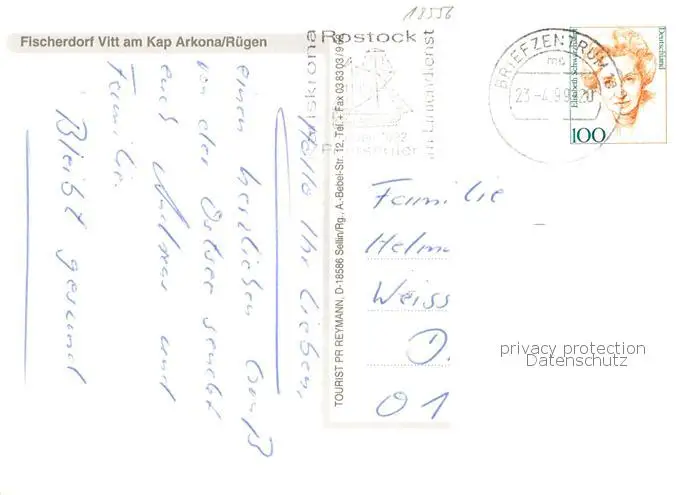 18556
Fischerdorf Vitt am Kap Arkona/Rügen
Hallo Ihr Lieben,
einen herzlichen Gruß
von der Ostsee sendet
euch Andreas und
Familie.
Bleibt gesund
TOURIST PR REYMANN, D-18586 Sellin/Rg., A.-Bebel-Str. 12, Tel. + Fax 03 83 03/9
Rostock
BRIEFZENTRUM 18
mc
23-4.99
Deutschland
Elisabeth Schwarzkopf
100
Familie
Helm
Weiss
D.
01
privacy protection
Datenschutz